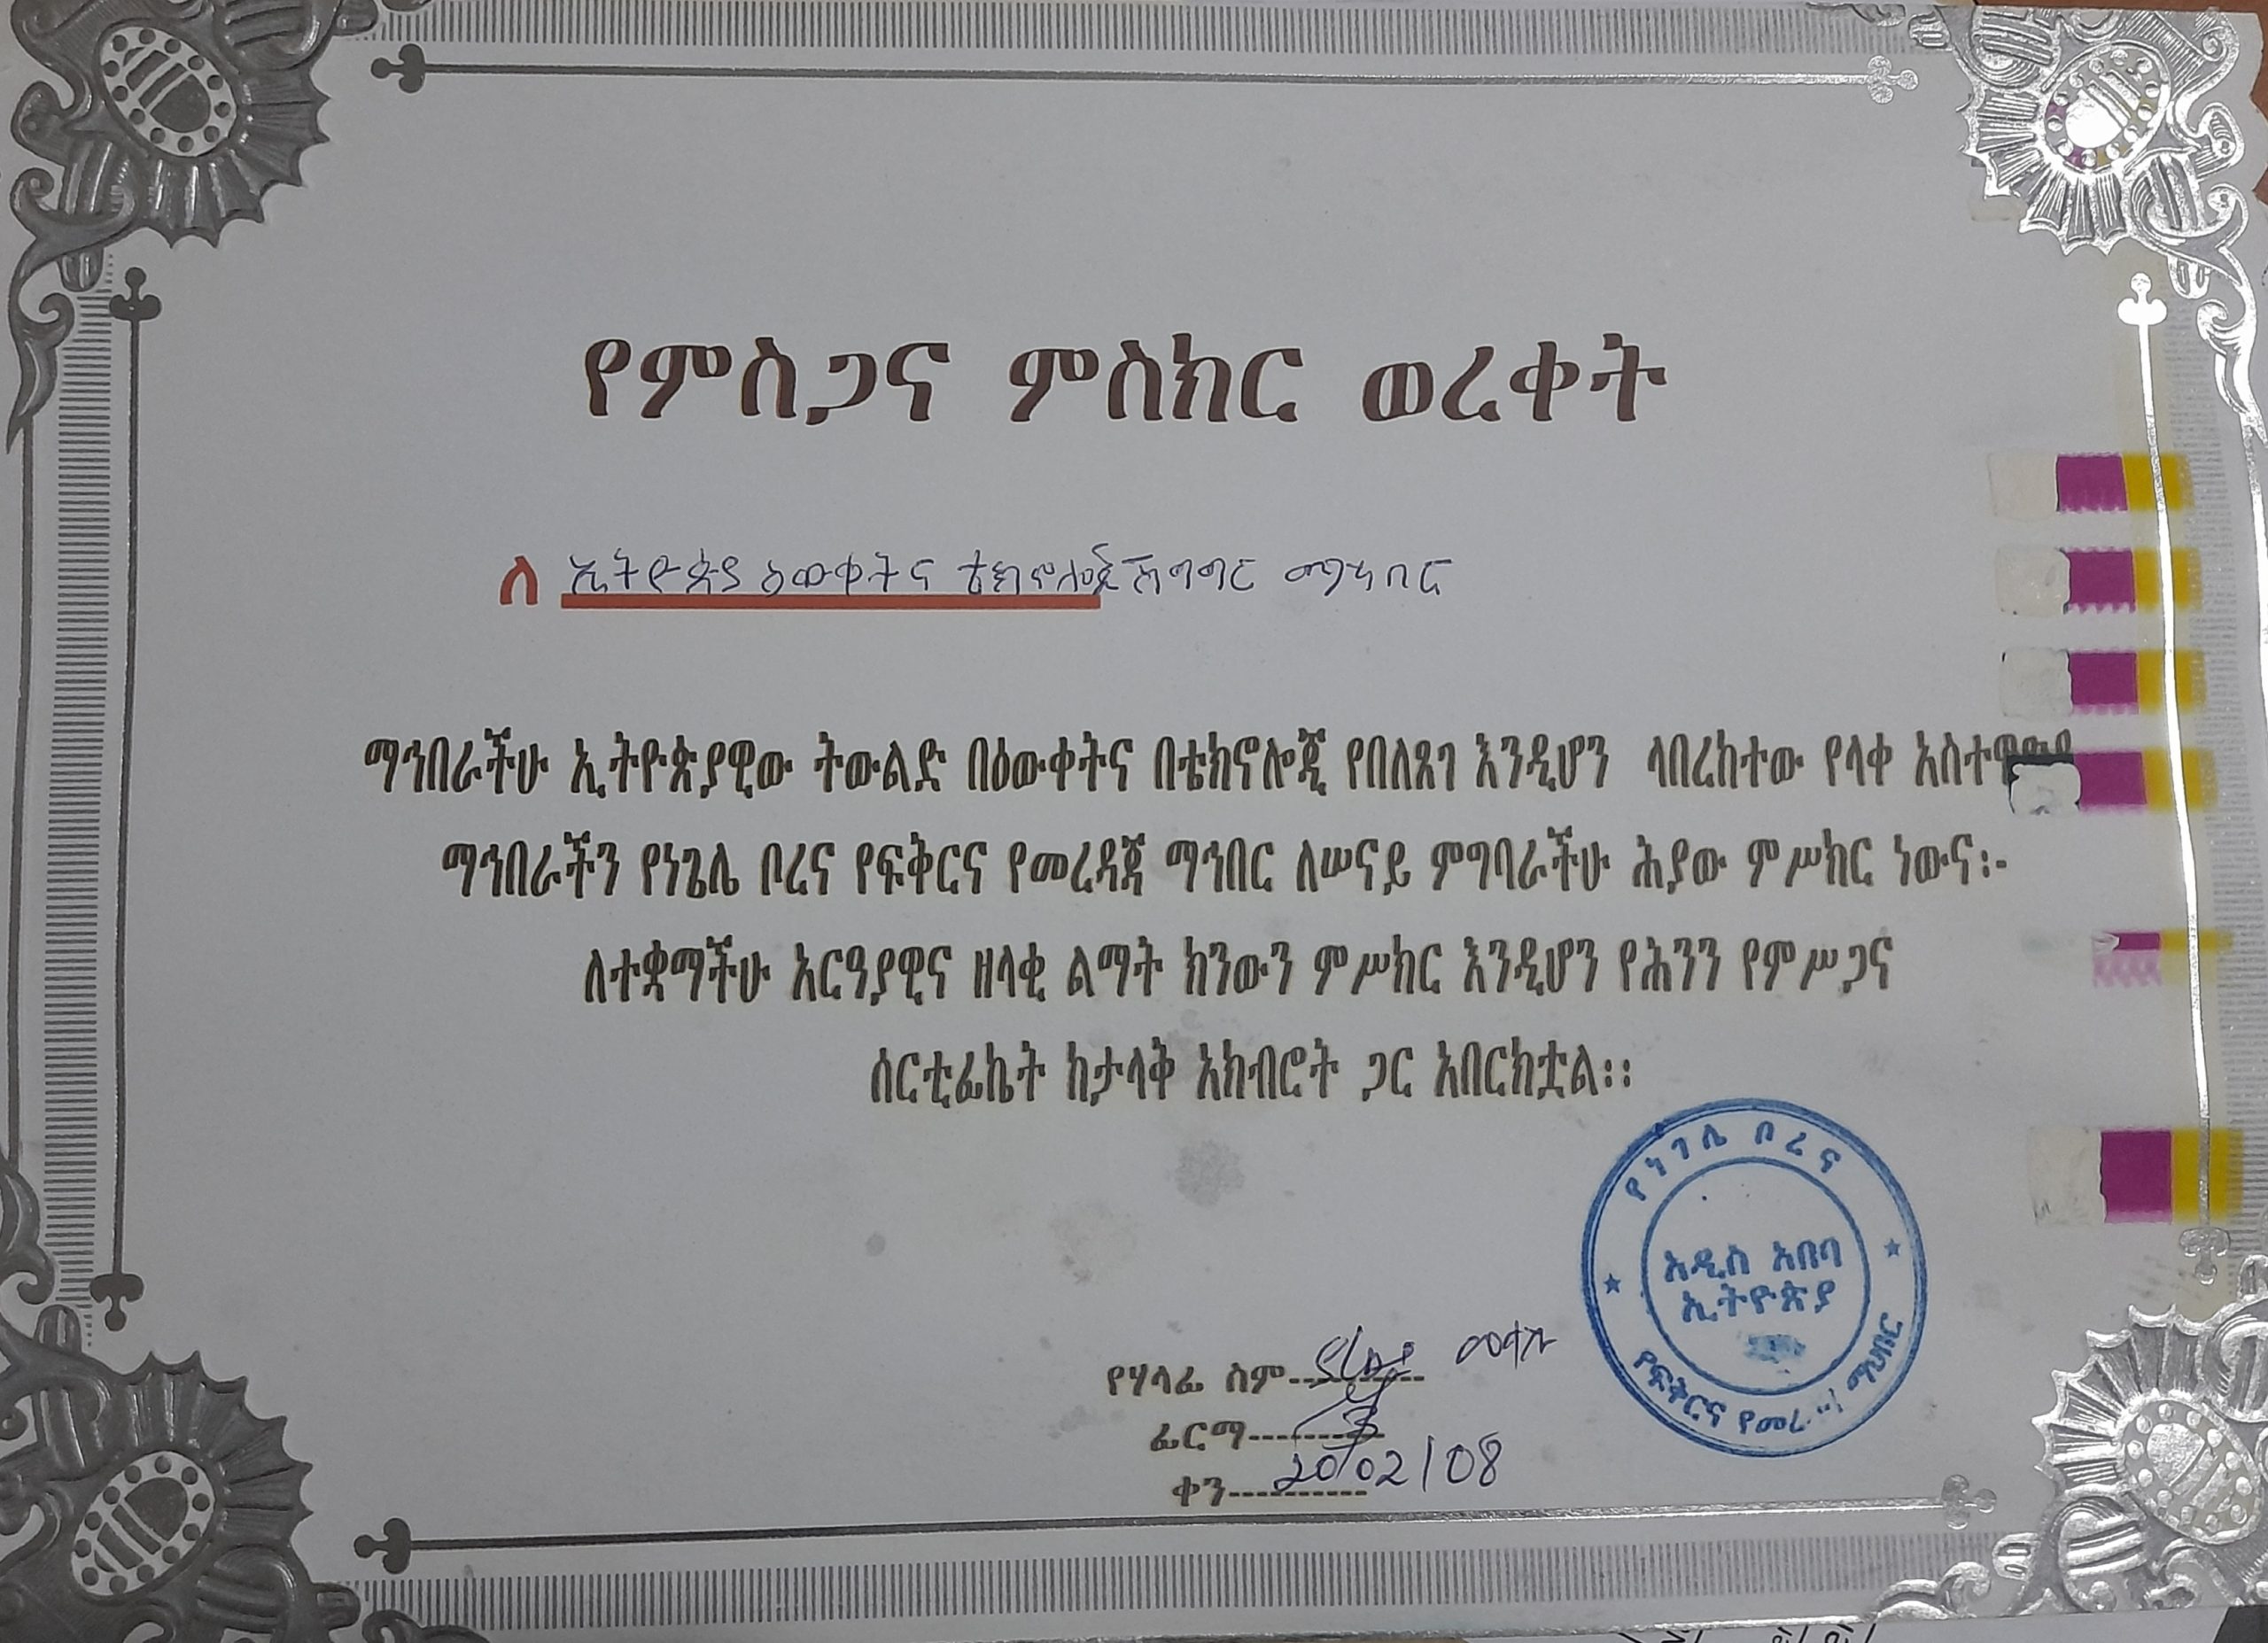 የምስጋና ምስክር ወረቀት
ለ ኢትዮጵያ ዕውቀትና ቴክኖሎጂ ሽግግር ማኅበር
ማኅበራችሁ ኢትዮጵያዊው ትውልድ በዕውቀትና በቴክኖሎጂ የበለጸገ እንዲሆን ላበረከተው የላቀ
ማኅበራችን የነጌሌ ቦረና የፍቅርና የመረዳጃ ማኅበር ለሠናይ ምግባራችሁ ሕያው ምሥክር ነውና፡-
ለተቋማችሁ አርዓያዊና ዘላቂ ልማት ክንውን ምሥክር እንዲሆን የሕንን የምሥጋና
ሰርቲፊኬት ከታላቅ አክብሮት ጋር አበርክቷል፡፡
የነገሌ ቦረና
አዲስ አበባ
ኢትዮጵያ
የፍቅርና ማህበር
የሃላፊ ስም
ፊርማ
ቀን 20/02/08